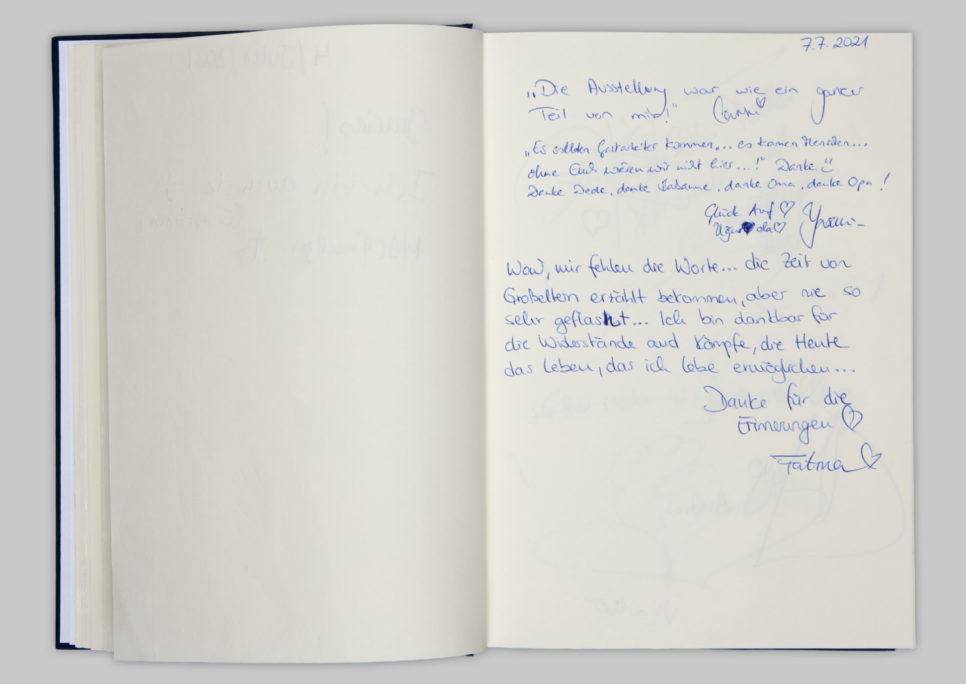 7.7.2021
„Die Ausstellung war wie ein ganzer
Teil von mir!"
„Es sollten Gastarbeiter kommen... es kamen Menschen...
ohne Euch wären wir nicht hier...!" Danke
Danke Dede, danke Babanne, danke Oma, danke Opa!
Glück Auf ♡
Wow, mir fehlen die Worte... die Zeit von
Großeltern erzählt bekommen, aber nie so
sehr geflasht... Ich bin dankbar für
die Widerstände und Kämpfe, die Heute
das Leben, das ich lebe ermöglichen...
Danke für die
Erinnerungen ♡
Fatma ♡